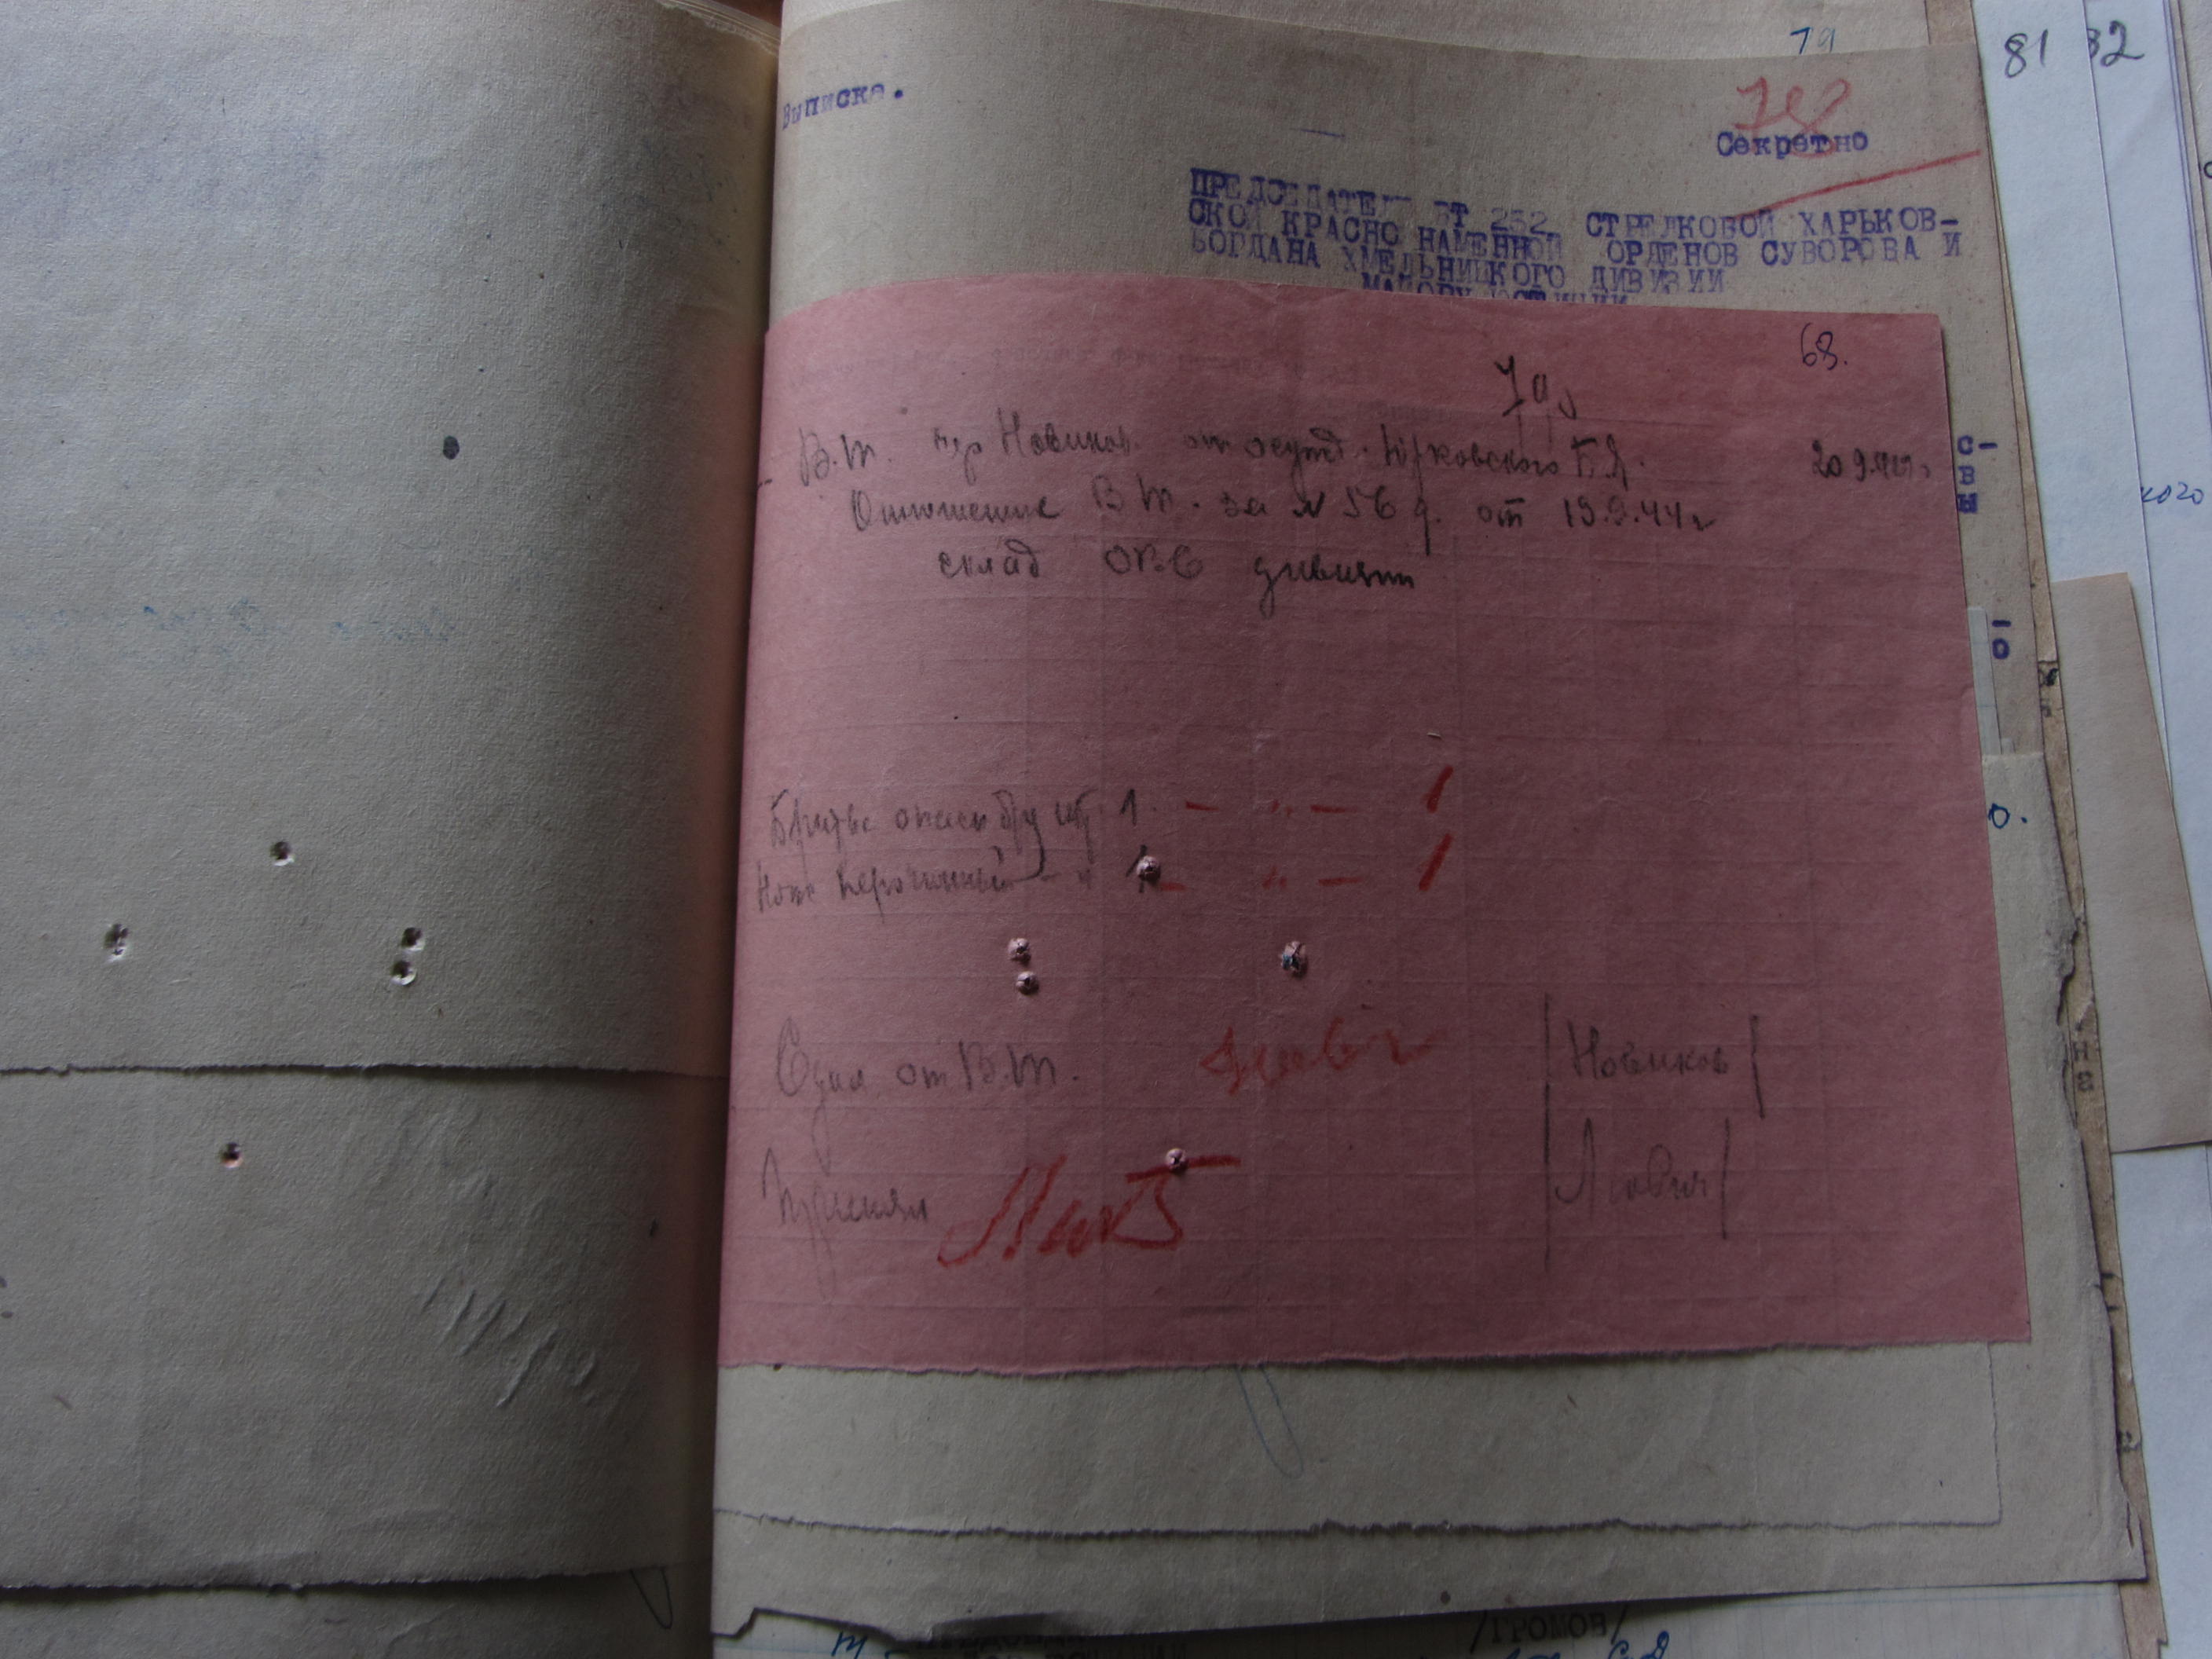 79
81
32
Выписка.
78
Секретно
ПРЕДСЕДАТЕЛ ВТ 252 СТРЕЛКОВОЙ ХАРЬКОВ-
СКОЙ КРАСНО НАМЕННОЙ ОРДЕНОВ СУВОРОВА И
БОГДАНА ХМЕЛЬНИЦКОГО ДИВИЗИИ
МАЙОРУ ЮСТИЦИИ
68.
В.т. Новиков от осужд. Юрковского 20 9.44г.
Отношение В т. за № 56 от 19.9.44г
склад дивизии
Бритва опасн б/у шт. 1. - " - 1
Нож перочинный - " 1 - " - 1
Сдал от В.т. /Новиков/
Принял
С-
В
Ы
-
О
кого
о.
/ГРОМОВ/